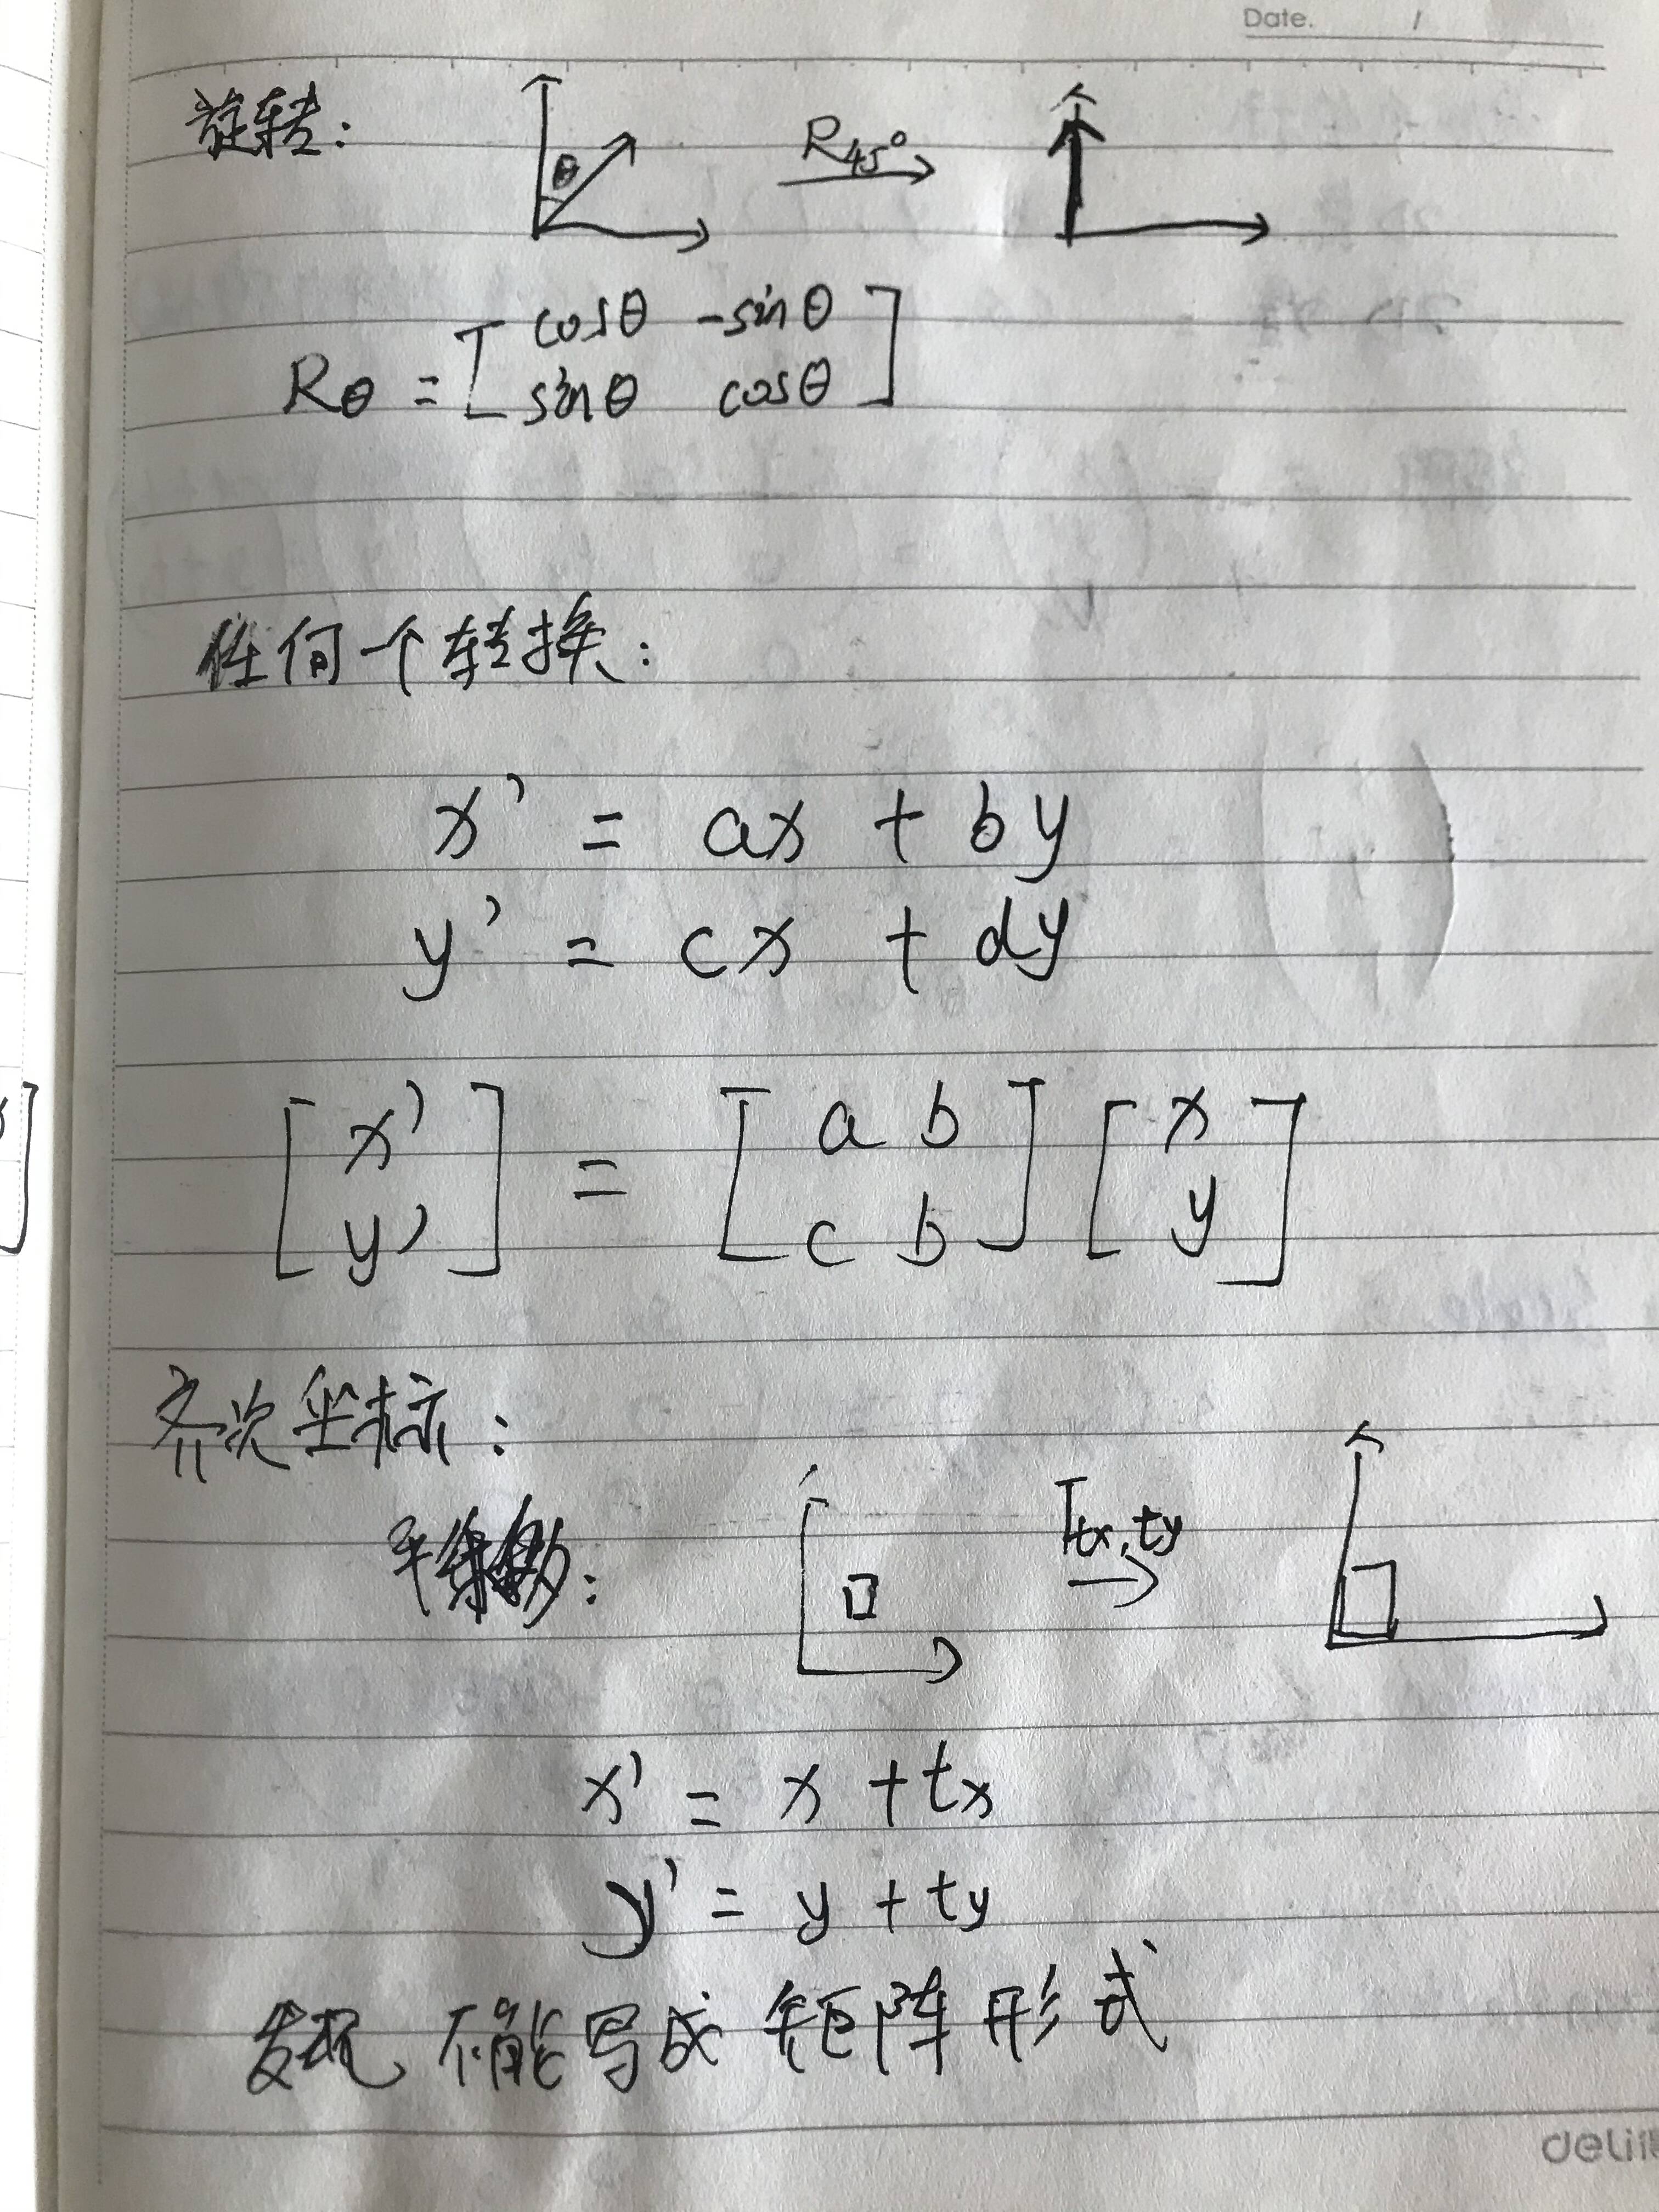 Date. /
旋转:
θ
R45°
Rθ = [ cosθ -sinθ ]
[ sinθ cosθ ]
任何一个转换:
x' = ax + by
y' = cx + dy
[ x' ] = [ a b ] [ x ]
[ y' ] [ c b ] [ y ]
齐次坐标:
平移:
Ttx,ty
x' = x + tx
y' = y + ty
发现 不能写成 矩阵形式
deli